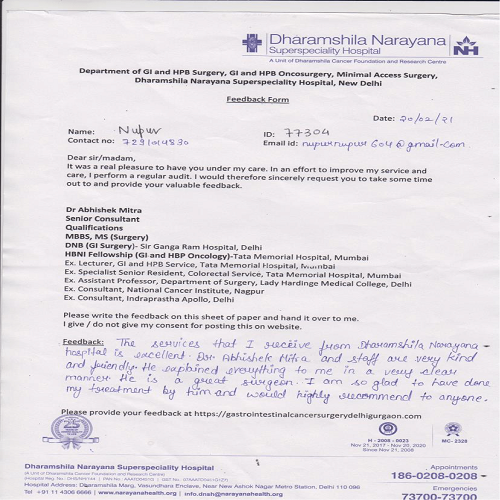 Dharamshila Narayana
Superspeciality Hospital
NH
A Unit of Dharamshila Cancer Foundation and Research Centre
Department of GI and HPB Surgery, GI and HPB Oncosurgery, Minimal Access Surgery,
Dharamshila Narayana Superspeciality Hospital, New Delhi
Feedback Form
Date: 20/02/21
Name: Nupur
ID: 77304
Contact no: 7291014830
Email id: nupurnupur604@gmail.com
Dear sir/madam,
It was a real pleasure to have you under my care. In an effort to improve my service and
care, I perform a regular audit. I would therefore sincerely request you to take some time
out to and provide your valuable feedback.
Dr Abhishek Mitra
Senior Consultant
Qualifications
MBBS, MS (Surgery)
DNB (GI Surgery)- Sir Ganga Ram Hospital, Delhi
HBNI Fellowship (GI and HBP Oncology)-Tata Memorial Hospital, Mumbai
Ex. Lecturer, GI and HPB Service, Tata Memorial Hospital, Mumbai
Ex. Specialist Senior Resident, Colorectal Service, Tata Memorial Hospital, Mumbai
Ex. Assistant Professor, Department of Surgery, Lady Hardinge Medical College, Delhi
Ex. Consultant, National Cancer Institute, Nagpur
Ex. Consultant, Indraprastha Apollo, Delhi
Please write the feedback on this sheet of paper and hand it over to me.
I give / do not give my consent for posting this on website.
Feedback: The services that I receive from Dharamshila Narayana
hospital is excellent. Dr. Abhishek Mitra and staff are very kind
and friendly. He explained everything to me in a very clear
manner. He is a great surgeon. I am so glad to have done
my treatment by him and would highly recommend to anyone.
Please provide your feedback at https://gastrointestinalcancersurgerydelhigurgaon.com
H - 2008 - 0023
Nov 21, 2017 - Nov 20, 2020
Since Nov 21, 2008
MC- 2328
Dharamshila Narayana Superspeciality Hospital
(A Unit of Dharamshila Cancer Foundation and Research Centre)
Hospital Address: Dharamshila Marg, Vasundhara Enclave, Near New Ashok Nagar Metro Station, Delhi 110 096
Tel +91 11 4306 6666 | www.narayanahealth.org | info.dnah@narayanahealth.org
Appointments
186-0208-0208
Emergencies
73700-73700